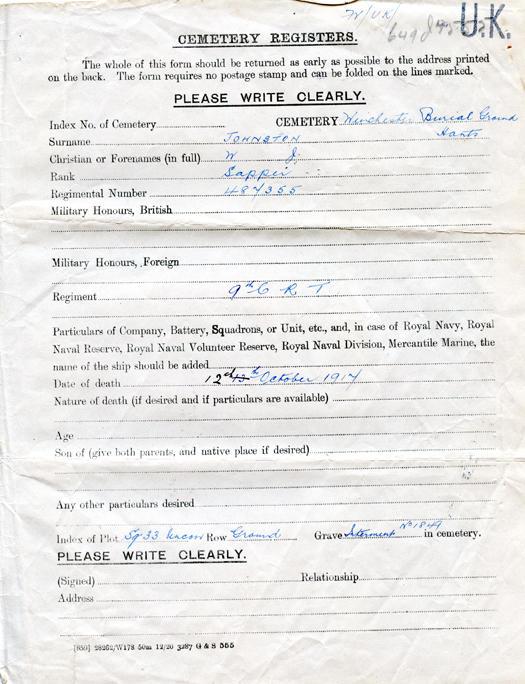 W/UK/
U.K.
CEMETERY REGISTERS.
The whole of this form should be returned as early as possible to the address printed
on the back. The form requires no postage stamp and can be folded on the lines marked.
PLEASE WRITE CLEARLY.
Index No. of Cemetery CEMETERY Winchester Burial Ground
Hants
Surname JOHNSTON
Christian or Forenames (in full) W J.
Rank Sapper
Regimental Number 487355
Military Honours, British
Military Honours, Foreign
Regiment 9th G R T
Particulars of Company, Battery, Squadrons, or Unit, etc., and, in case of Royal Navy, Royal
Naval Reserve, Royal Naval Volunteer Reserve, Royal Naval Division, Mercantile Marine, the
name of the ship should be added
Date of death 12th 13th October 1917
Nature of death (if desired and if particulars are available)
Age
Son of (give both parents, and native place if desired)
Any other particulars desired
Index of Plot Sq 33 Uncon Row Ground Grave Interment No 1849 in cemetery.
PLEASE WRITE CLEARLY.
(Signed) Relationship
Address
[859] 28262/W178 50m 12/20 3287 G & S 555